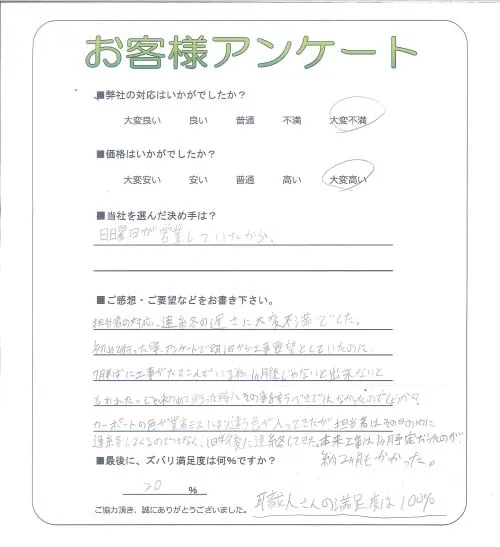 お客様アンケート
■弊社の対応はいかがでしたか?
大変良い 良い 普通 不満 大変不満
■価格はいかがでしたか?
大変安い 安い 普通 高い 大変高い
■当社を選んだ決め手は?
日曜日が営業していたから。
■ご感想・ご要望などをお書き下さい。
担当者の対応、連絡等の遅さに大変不満でした。
初めて行った時、アンケートで8月1日から工事要望としていたのに、
7月半ばに工事がたてこんでいる為1ヶ月後じゃないと出来ないと
初めて行った時にその事を言うべきではなかったのでは
カーポートの色が業者ミスにより違う色が入ってきたが担当者はその日の内に
連絡をしてくるのではなく、に連絡してきた。本来工事は1ヶ月予定だったのが
約2ヶ月もかかった。
■最後に、ズバリ満足度は何%ですか?
20 %
ご協力頂き、誠にありがとうございました。
職人さんの満足度は100%